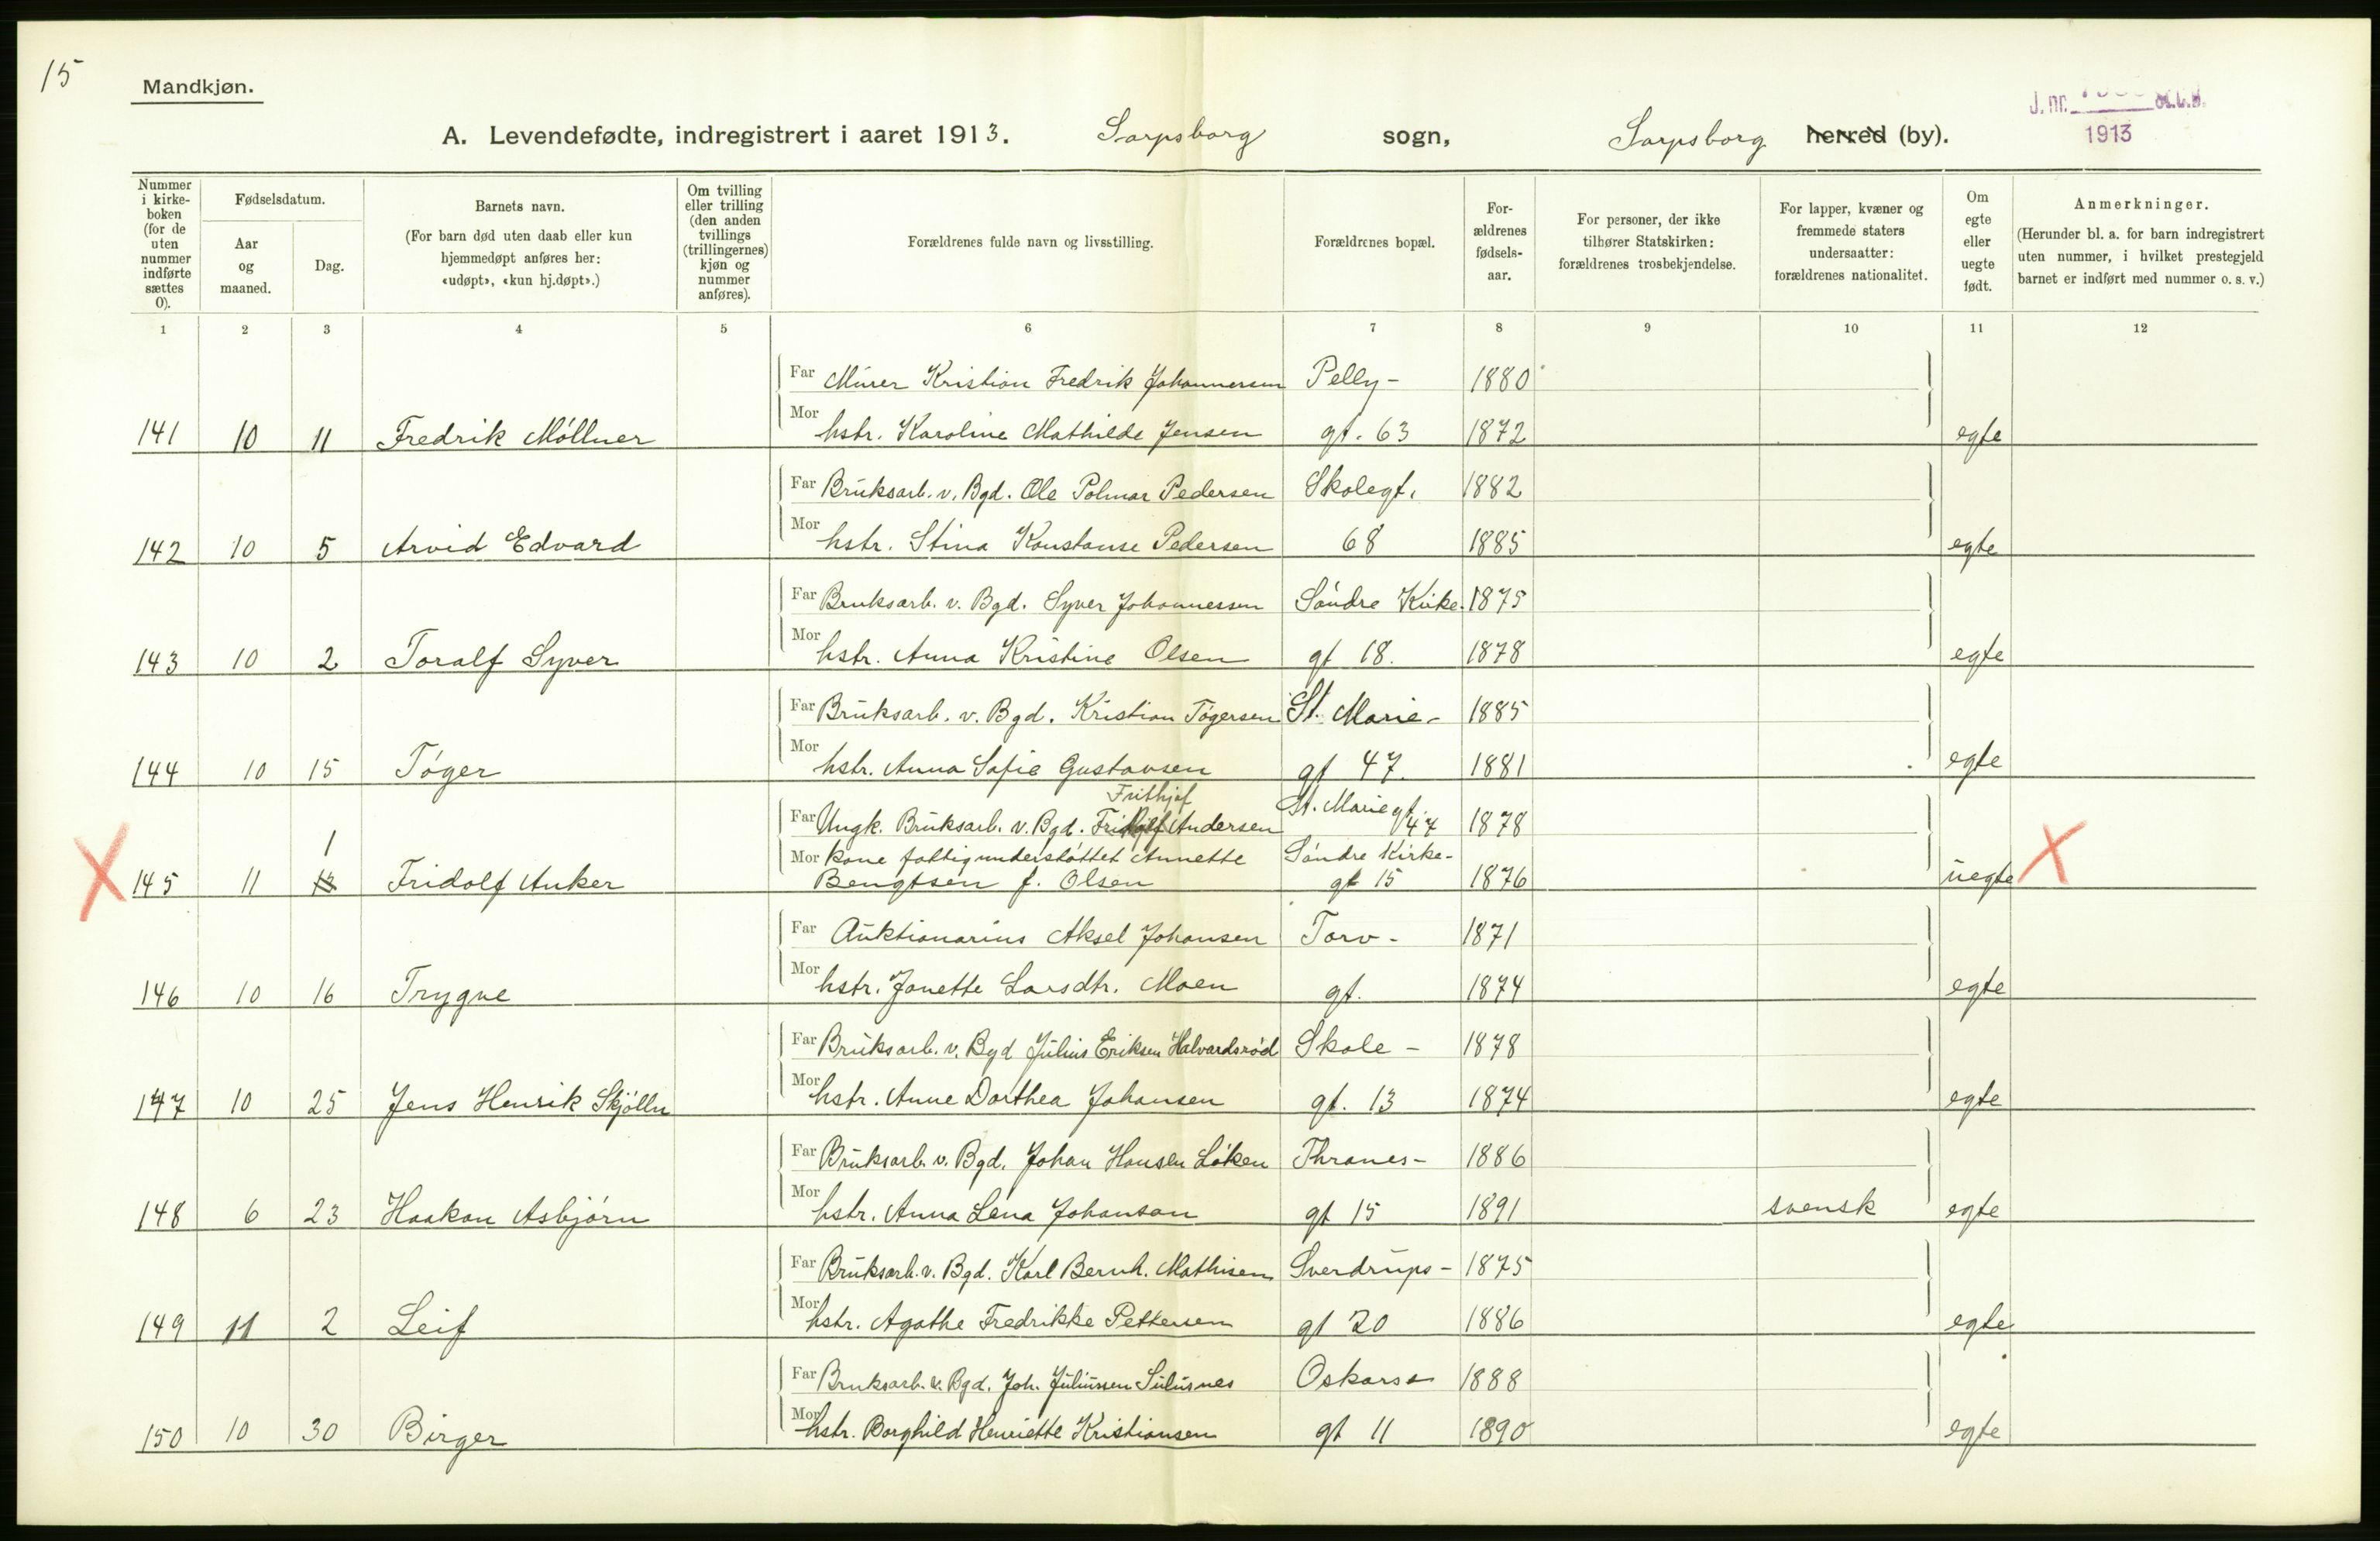 15
Mandkjøn.
J. nr. St.c.B.
1913
A. Levendefødte, indregistrert i aaret 1913. Sarpsborg sogn, Sarpsborg herred (by).
Nummer i kirke-boken (for de uten nummer indførte sættes 0).
Fødselsdatum.
Aar og maaned.
Dag.
Barnets navn.
(For barn død uten daab eller kun hjemmedøpt anføres her: «udøpt», «kun hj.døpt».)
Om tvilling eller trilling (den anden tvillings (trillingernes) kjøn og nummer anføres).
Forældrenes fulde navn og livsstilling.
Forældrenes bopæl.
For-ældrenes fødsels-aar.
For personer, der ikke tilhører Statskirken: forældrenes trosbekjendelse.
For lapper, kvæner og fremmede staters undersaatter: forældrenes nationalitet.
Om egte eller uegte født.
Anmerkninger.
(Herunder bl. a. for barn indregistrert uten nummer, i hvilket prestegjeld barnet er indført med nummer o. s. v.)
1 2 3 4 5 6 7 8 9 10 11 12
Far Murer Kristian Fredrik Johannersen Pelly- 1880
141 10 11 Fredrik Møllner Mor hstr. Karoline Mathilde Jensen gt. 63 1872 egte
Far Bruksarb. v. Bgd. Ole Polmar Pedersen Skolegt. 1882
142 10 5 Arvid Edvard Mor hstr. Stina Konstanse Pedersen 68 1885 egte
Far Bruksarb. v. Bgd. Syver Johannessen Søndre Kirke- 1875
143 10 2 Toralf Syver Mor hstr. Anna Kristine Olsen gt 18. 1878 egte
Far Bruksarb. v. Bgd. Kristian Tøgersen St. Marie- 1885
144 10 15 Tøger Mor hstr. Anna Sofie Gustavsen gt 47. 1881 egte
Frithjof
Far Ungk. Bruksarb. v. Bgd. Andersen St. Marie gt. 47 1878
1
Mor kone fattigunderstøttet Annette Søndre Kirke-
145 11 Fridolf Anker Bengtsen f. Olsen gt 15 1876 uegte
Far Auktionarius Aksel Johansen Torv- 1871
146 10 16 Trygve Mor hstr. Janette Larsdtr. Moen gt. 1874 egte
Far Bruksarb. v. Bgd Julius Eriksen Halvardsrød Skole- 1878
147 10 25 Jens Henrik Skjølln Mor hstr. Anne Dorthea Johansen gt. 13 1874 egte
Far Bruksarb. v. Bgd. Johan Hansen Løken Thranes- 1886
148 6 23 Haakon Asbjørn Mor hstr. Anna Lena Johanson gt 15 1891 svensk egte
Far Bruksarb. v. Bgd. Karl Bernh. Mathisen Sverdrups- 1875
149 11 2 Leif Mor hstr. Agathe Fredrikke Pettersen gt 20 1886 egte
Far Bruksarb. v. Bgd. Joh. Juliussen Sulusnes Oskars- 1888
150 10 30 Birger Mor hstr. Borghild Henriette Kristiansen gt 11 1890 egte